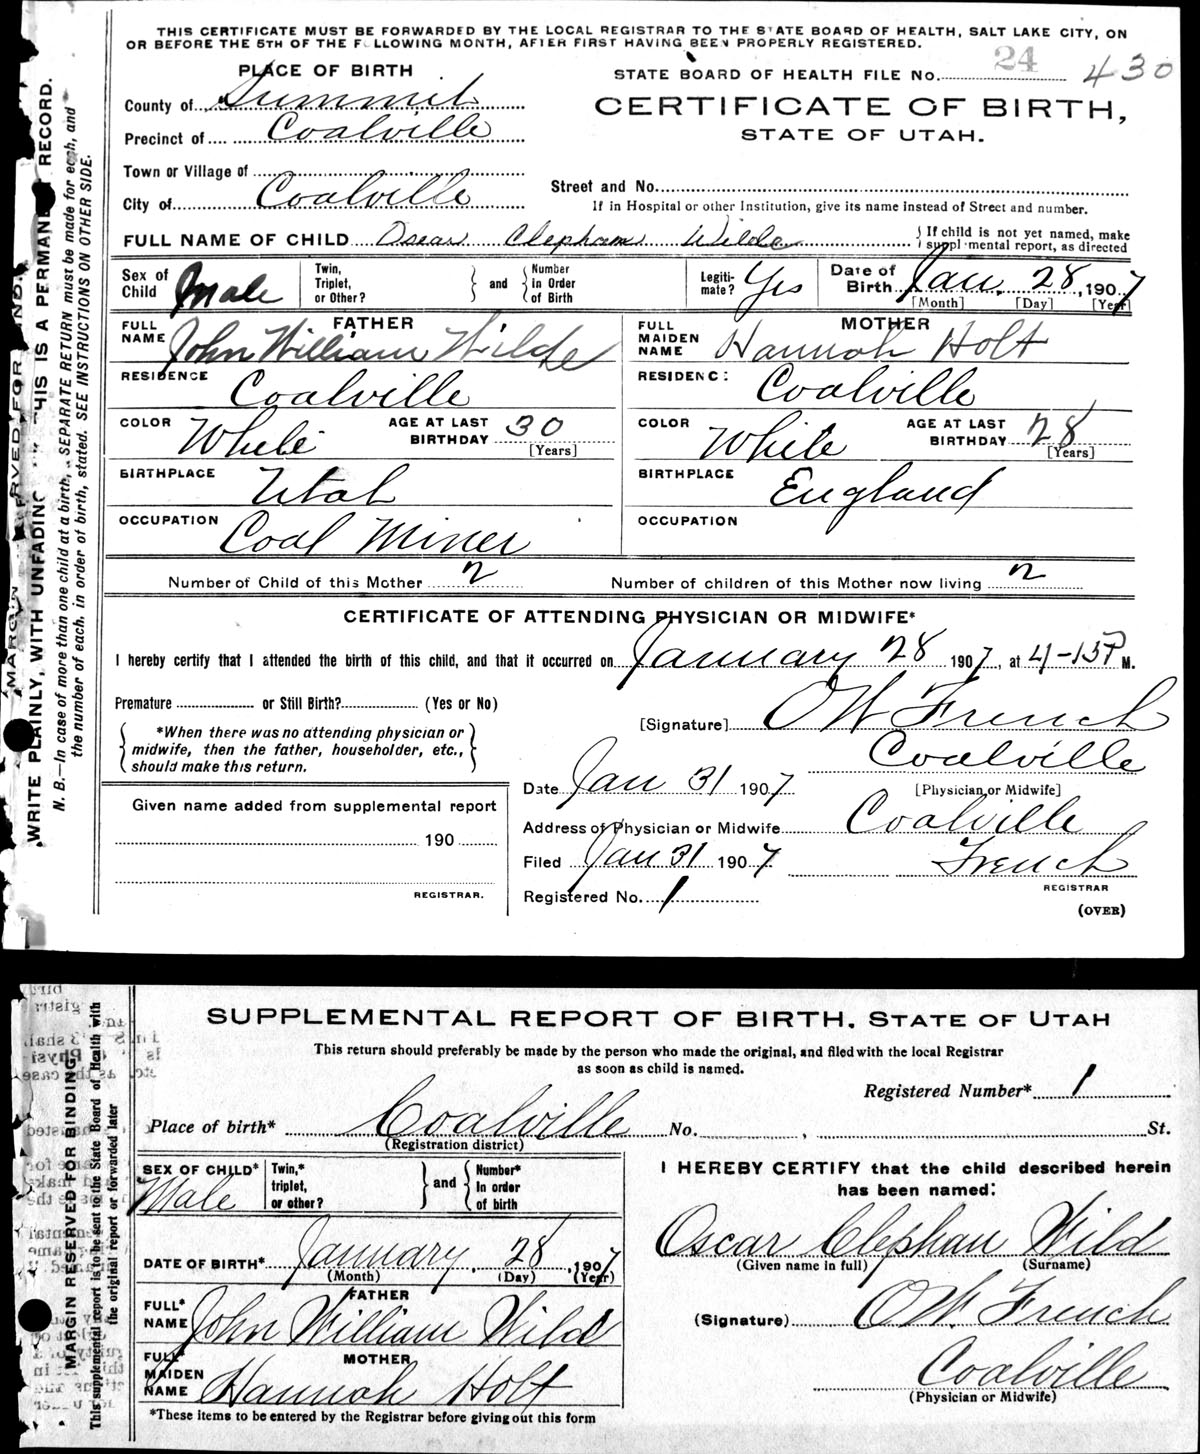 THIS CERTIFICATE MUST BE FORWARDED BY THE LOCAL REGISTRAR TO THE STATE BOARD OF HEALTH, SALT LAKE CITY, ON
OR BEFORE THE 5TH OF THE FOLLOWING MONTH, AFTER FIRST HAVING BEEN PROPERLY REGISTERED.
24
PLACE OF BIRTH
STATE BOARD OF HEALTH FILE No. 430
County of Summit
CERTIFICATE OF BIRTH,
Precinct of Coalville
STATE OF UTAH.
Town or Village of
Street and No.
City of Coalville
If in Hospital or other Institution, give its name instead of Street and number.
FULL NAME OF CHILD Oscar Clepham Wilde
If child is not yet named, make
supplemental report, as directed
Sex of Child Male
Twin, Triplet, or Other?
and
Number in Order of Birth
Legiti-mate? Yes
Date of Birth Jan. 28, 1907
[Month] [Day] [Year]
FATHER
FULL NAME John William Wilde
MOTHER
FULL MAIDEN NAME Hannah Holt
RESIDENCE Coalville
RESIDENC: Coalville
COLOR White
AGE AT LAST BIRTHDAY 30
[Years]
COLOR White
AGE AT LAST BIRTHDAY 28
[Years]
BIRTHPLACE Utah
BIRTHPLACE England
OCCUPATION Coal Miner
OCCUPATION
Number of Child of this Mother 2
Number of children of this Mother now living 2
CERTIFICATE OF ATTENDING PHYSICIAN OR MIDWIFE*
I hereby certify that I attended the birth of this child, and that it occurred on January 28 1907, at 4-15 P M.
Premature or Still Birth? (Yes or No)
[Signature] O W French
*When there was no attending physician or
midwife, then the father, householder, etc.,
should make this return.
Coalville
[Physician or Midwife]
Date Jan 31 1907
Given name added from supplemental report
190
REGISTRAR.
Address of Physician or Midwife Coalville
Filed Jan 31 1907 French
REGISTRAR
Registered No. 1
(OVER)
MARGIN RESERVED FOR BINDING.
WRITE PLAINLY, WITH UNFADING THIS IS A PERMANENT RECORD.
N. B.—In case of more than one child at a birth, a SEPARATE RETURN must be made for each, and
the number of each, in order of birth, stated. SEE INSTRUCTIONS ON OTHER SIDE.
SUPPLEMENTAL REPORT OF BIRTH. STATE OF UTAH
This return should preferably be made by the person who made the original, and filed with the local Registrar
as soon as child is named.
Registered Number* 1
Place of birth* Coalville No. , St.
(Registration district)
SEX OF CHILD* Male
Twin,* triplet, or other?
and
Number* In order of birth
I HEREBY CERTIFY that the child described herein
has been named:
Oscar Clephan Wild
(Given name in full) (Surname)
DATE OF BIRTH* January, 28, 1907
(Month) (Day) (Year)
FATHER
FULL* NAME John William Wild
(Signature) O W. French
MOTHER
FULL* MAIDEN NAME Hannah Holt
Coalville
(Physician or Midwife)
*These items to be entered by the Registrar before giving out this form
MARGIN RESERVED FOR BINDING.
This supplemental report is to be sent to the State Board of Health with
the original report or forwarded later